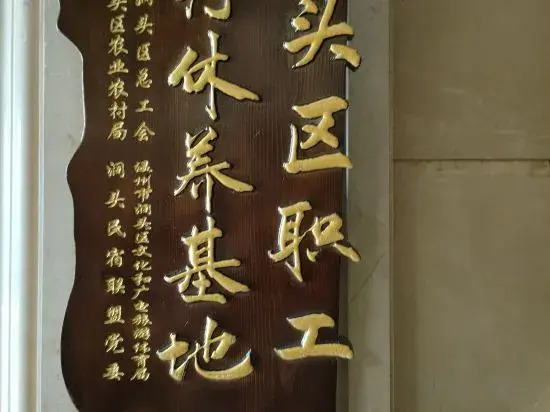 头区职工
休养基地
洞头区总工会 温州市洞头区文化和广电旅游体育局
头区农业农村局 洞头民宿联盟党委